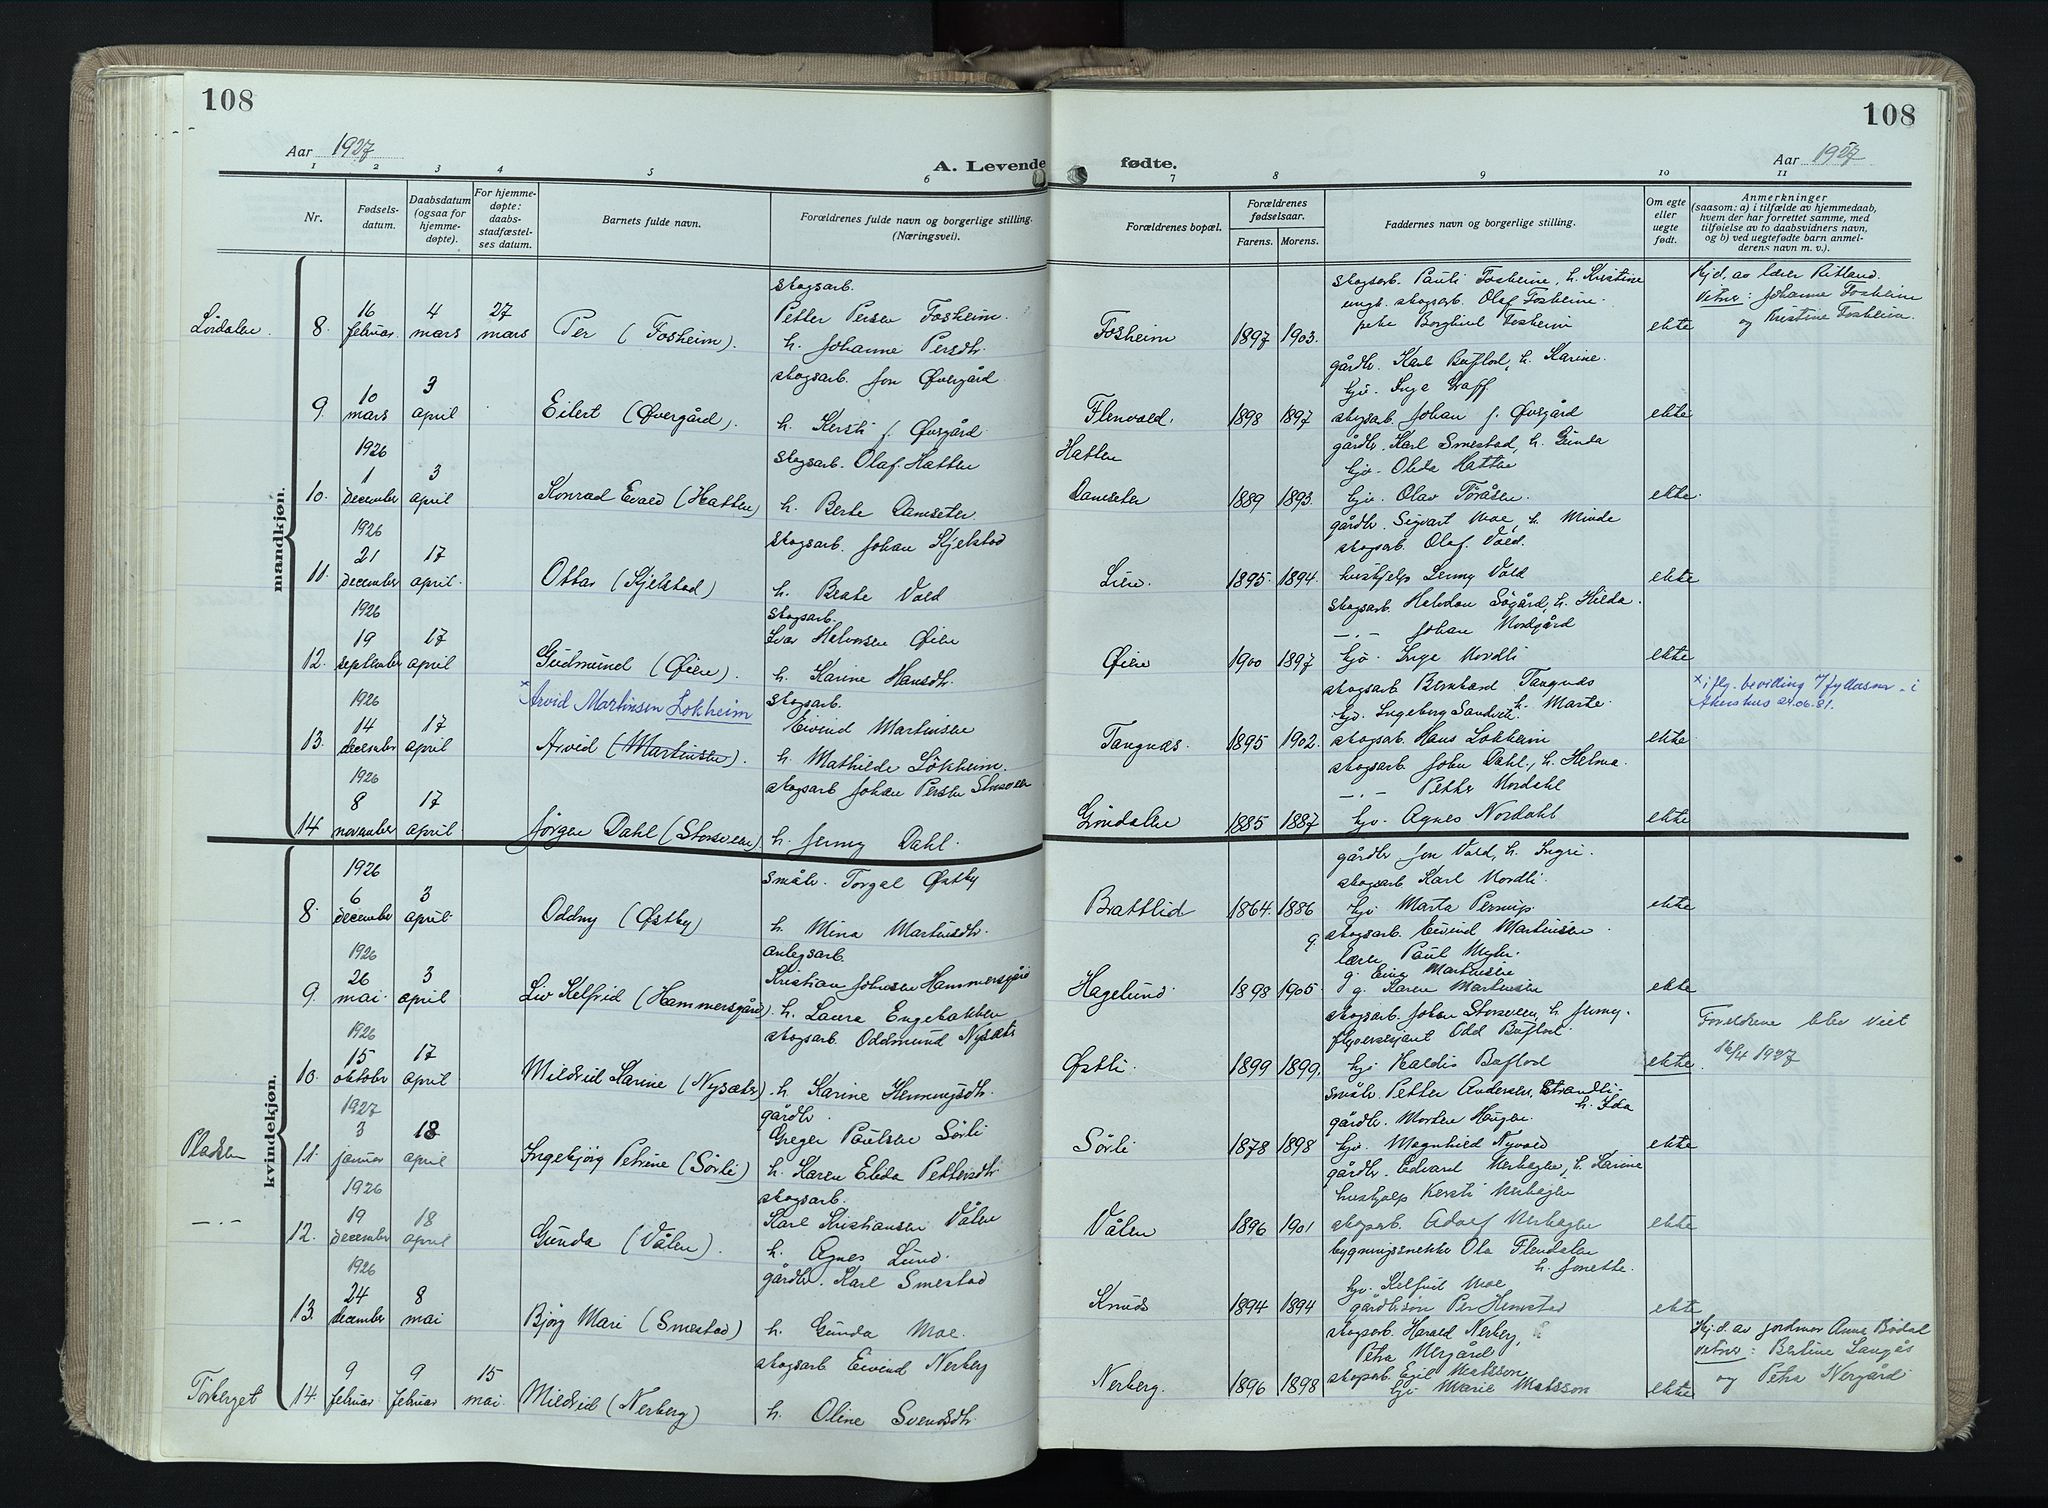 108
108
Aar 1927
A. Levende
fødte.
Aar 1927
1 2 3 4 5 6 7 8 9 10 11
Nr.
Fødselsdatum.
Daabsdatum (ogsaa for hjemmedøpte).
For hjemmedøpte: daabsstadfæstelses datum.
Barnets fulde navn.
Forældrenes fulde navn og borgerlige stilling. (Næringsvei).
Forældrenes bopæl.
Forældrenes fødselsaar.
Farens. Morens.
Faddernes navn og borgerlige stilling.
Om egte eller uegte født.
Anmerkninger
(saasom: a) i tilfælde av hjemmedaab, hvem der har forrettet samme, med tilføielse av to daabsvidners navn, og b) ved uegtefødte barn anmelderens navn m. v.).
mandkjøn.
Lørdalen.
8. 16 februar 4 mars 27 mars Per (Fosheim).
skogsarb.
Petter Persen Fosheim.
h. Johanne Persdtr.
Fosheim 1897 1903.
skogsarb. Pauli Fosheim, h. Kristine
ungk. skogsarb. Olaf Fosheim.
pike Borghild Fosheim
ekte
Hjd. av lærer Ritland.
Vitner: Johanne Fosheim
og Kristine Fosheim.
9. 10 mars 3 april Eilert (Øvergård).
skogsarb. Jon Øvergård
h. Kersti J. Øvergård
Flenvold. 1898 1897
gårdbr. Karl Buflod, h. Karine.
hjv. Inga Graff.
skogsarb. Johan J. Øvergård
ekte
10. 1926 1 december 3 april Konrad Evald (Hatten)
skogsarb. Olaf Hatten
h. Berte Damseter
Hatten
Damseter 1889 1893.
gårdbr. Karl Smestad, h. Gunda
hjv. Oleda Hatten
hjv. Olav Föråsen.
ekte.
11. 1926 21 december 17 april. Ottar (Kjelstad)
skogsarb. Johan Kjelstad
h. Beate Vold
Lien. 1895. 1894.
gårdbr. Sigvart Moe, h. Minda
skogsarb. Olaf Vold.
hushjelp Jenny Vold
ekte
12. 1926 19 september 17 april Gudmund (Øien).
skogsarb.
Ivar Halvorsen Øien
h. Karine Hansdtr.
Øien 1900 1897
skogsarb. Halvdan Søgård, h. Hilda.
—.— Johan Nordgård
hjv. Inga Nordli
ekte
× Arvid Martinsen Lokheim
13. 1926 14 december 17 april Arvid (Martinsen).
skogsarb.
Eivind Martinsen
h. Mathilde Løkheim.
Tangnæs. 1895 1902.
skogsarb. Bernhard Tangnæs
h. Marte.
hjv. Ingeborg Sandvik
skogsarb. Hans Lokheim
ekte.
× iflg. bevilling i
Akershus 24.06.81.
14. 1926 8 november 17 april Jørgen Dahl (Storsveen)
skogsarb. Johan Persen Storsveen
h. Jenny Dahl.
Gröndalen 1885 1887
skogsarb. John Dahl, h. Helma.
—.— Petter Nordahl
hjv. Agnes Nordahl
ekte
kvindekjøn.
8. 1926 6 december 3 april. Oddny (Østby)
småbr. Torgal Østby
h. Mina Martinsdtr.
Brattlid 1864. 1886
gårdbr Jon Vold, h. Ingri.
skogsarb Karl Nordli.
hjv Marta Pernup.
ekte
9. 1926 26 mai 3 april Liv Kelfrid (Hammersgård).
anlegsarb.
Kristian Johnsen Hammersgård
h. Laura Engebakken
Hagelund. 1898 1905
skogsarb. Eivind Martinsen
lærer Paul Myhr.
g. Einy Martinsen
g. Karen Martinsen
ekte
10. 1926 15 oktobr 17 april Mildrid Karine (Nysæter)
skogsarb Oddmund Nysæter
h. Karine Henningsdtr.
Østli. 1899 1899.
skogsarb. Johan Storsveen, h. Jenny.
flyversersjant Odd Buflod.
hjv Haldis Buflod
ekte.
Foreldrene blev viet
16/4 1927
Pladsen
11. 1927 3 januar 18 april Ingebjørg Petrine (Sørli)
gårdbr.
Greger Paulsen Sörli
h. Karen Eleda Pettersdtr
Sörli 1878 1898
småbr. Petter Andersen, Strandli.
h. Ida
gårdbr. Morten Haugen.
hjv. Magnhild Nyvold
ekte
—.—
12. 1926 19 december 18 april Gunda (Vålen).
skogsarb.
Karl Kristiansen Vålen
h. Agnes Lund.
Vålen 1896 1901
gårdbr. Edvard Nerhagen, h. Karine
hushjelp Kersti Nerhagen
skogsarb. Adolf Nerhagen
ekte
13. 1926 24 december 8 mai Bjørg Mari (Smestad)
gårdbr. Karl Smestad
h. Gunda Moe.
Knuds 1894 1894
bygningssnekker Ola Flendalen
h. Jonette.
hjv. Kelfrid Moe
gårdbr.søn Per Hemstad
ekte
Törberget
14. 9 februar. 9 februar 15 mai. Mildrid (Nerberg)
skogsarb Eivind Nerberg
h. Oline Svendsdtr.
Nerberg. 1896 1898
skogsarb. Harald Nerberg,
Petra Nergård
skogsarb. Egil Matsson
hjv Marie Matsson
ekte
Hj.d. av jordmor Anna Bödal
Vitner: Bertine Langås
og Petra Nergård